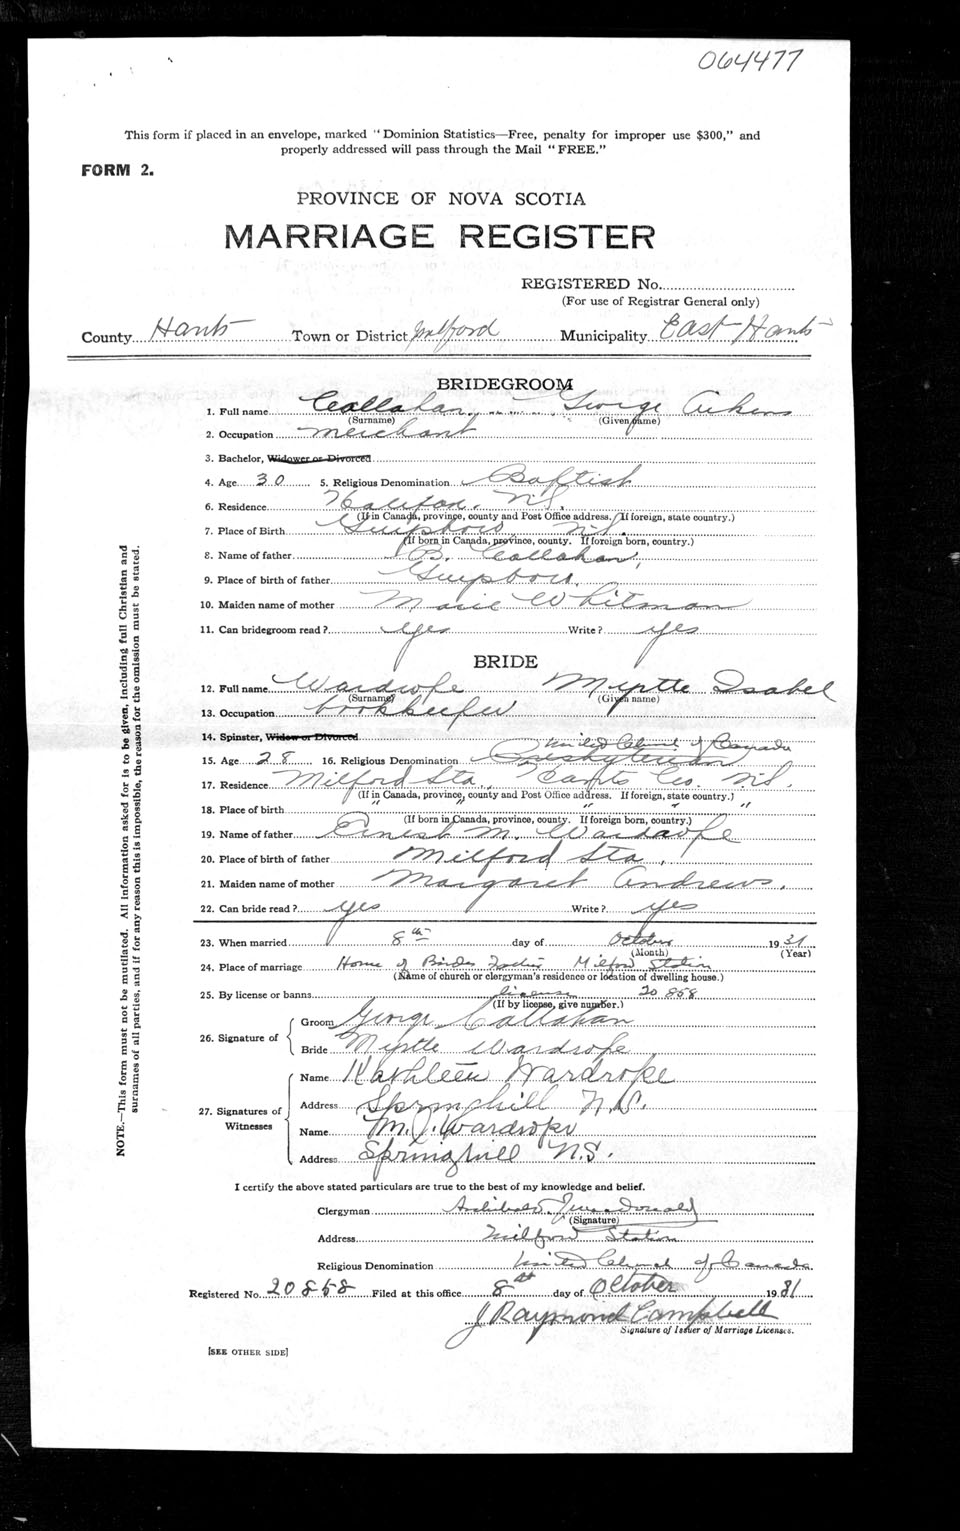 064477
This form if placed in an envelope, marked "Dominion Statistics—Free, penalty for improper use $300," and
properly addressed will pass through the Mail "FREE."
FORM 2.
PROVINCE OF NOVA SCOTIA
MARRIAGE REGISTER
REGISTERED No.
(For use of Registrar General only)
County Hants Town or District Milford Municipality East Hants
BRIDEGROOM
1. Full name Callahan, George Aikens
(Surname) (Given name)
2. Occupation merchant
3. Bachelor, Widower or Divorced
4. Age 30 5. Religious Denomination Baptist
6. Residence Halifax, N.S.
(If in Canada, province, county and Post Office address. If foreign, state country.)
7. Place of Birth Guysboro N.S.
(If born in Canada, province, county. If foreign born, country.)
8. Name of father B. Callahan,
9. Place of birth of father Guysboro
10. Maiden name of mother Marie Whitman
11. Can bridegroom read? yes Write? yes
BRIDE
12. Full name Wardrope Myrtle Isabel
(Surname) (Given name)
13. Occupation bookkeeper
14. Spinster, Widow or Divorced
United Church of Canada
15. Age 28 16. Religious Denomination Presbyterian
17. Residence Milford Sta., Hants Co. N.S.
(If in Canada, province, county and Post Office address. If foreign, state country.)
18. Place of birth " " " " "
(If born in Canada, province, county. If foreign born, country.)
19. Name of father Ernest M. Wardrope
20. Place of birth of father Milford Sta,
21. Maiden name of mother Margaret Andrews.
22. Can bride read? yes Write? yes
23. When married 8th day of October 1931
(Month) (Year)
24. Place of marriage Home of Brides Father Milford Station
(Name of church or clergyman's residence or location of dwelling house.)
25. By license or banns license 20858
(If by license, give number.)
26. Signature of
Groom George Callahan
Bride Myrtle Wardrope
27. Signatures of Witnesses
Name Kathleen Wardrope
Address Springhill N.S.
Name M. J. Wardrope
Address Springhill N.S.
I certify the above stated particulars are true to the best of my knowledge and belief.
Clergyman Archibald J MacDonald
(Signature)
Address Milford Station
Religious Denomination United Church of Canada
Registered No. 20858 Filed at this office 8th day of October 1931
J Raymond Campbell
Signature of Issuer of Marriage Licenses.
[SEE OTHER SIDE]
NOTE.—This form must not be mutilated. All information asked for is to be given, including full Christian and
surnames of all parties, and if for any reason this is impossible, the reason for the omission must be stated.